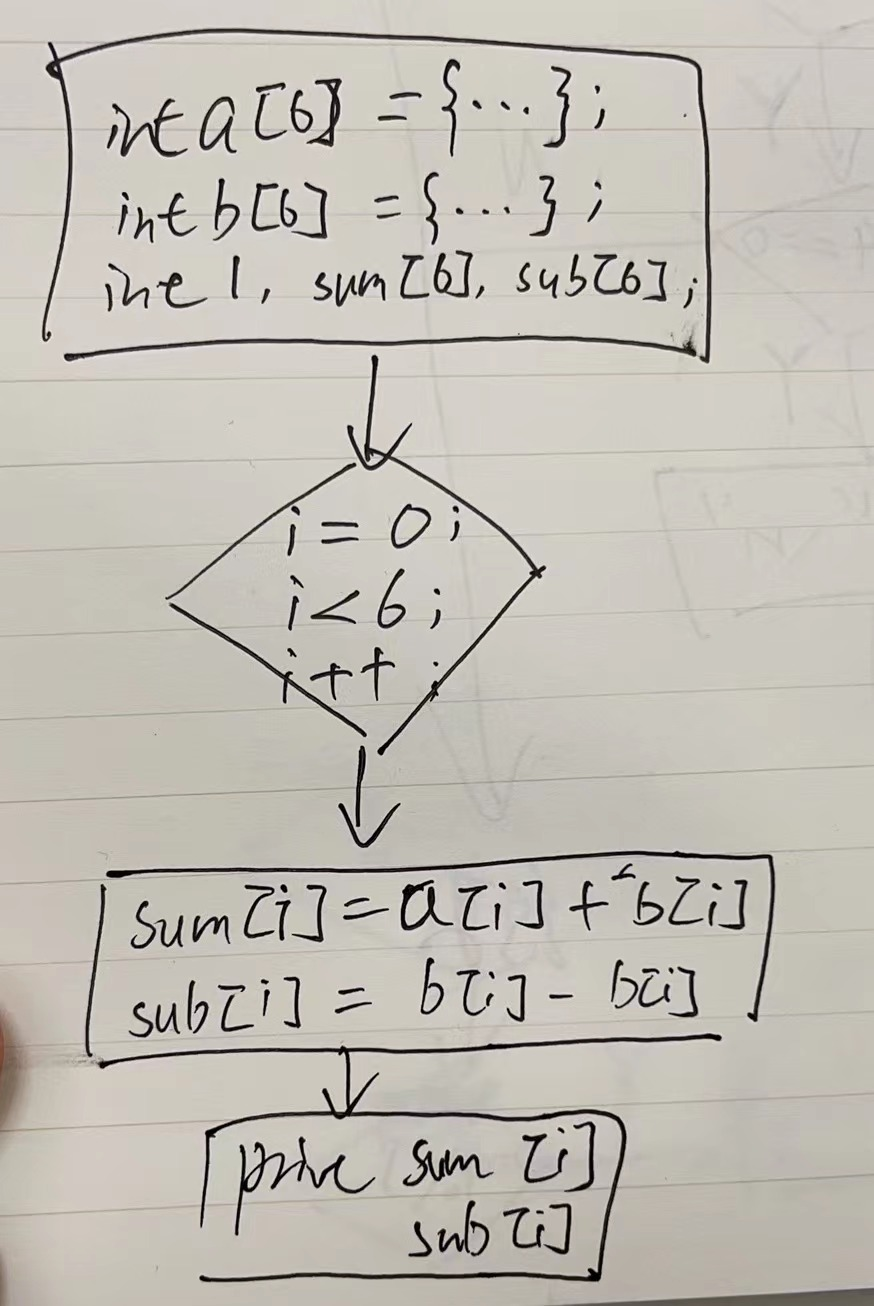 int a[6] = {...};
int b[6] = {...};
int 1, sum[6], sub[6];
i = 0;
i < 6;
i++;
sum[i] = a[i] + b[i]
sub[i] = b[i] - b[i]
sum [i]
sub [i]